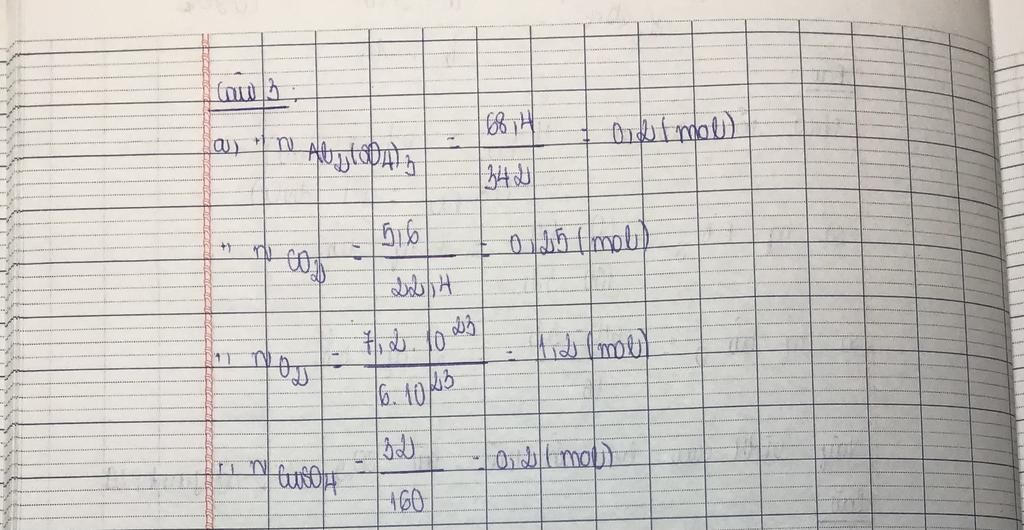 Câu 3:
a, " n Al2(SO4)3 = 68,4 / 342 = 0,2 (mol)
" n CO2 = 5,6 / 22,4 = 0,25 (mol)
" n O2 = 7,2. 10^23 / 6. 10^23 = 1,2 (mol)
" n CuSO4 = 32 / 160 = 0,2 (mol)